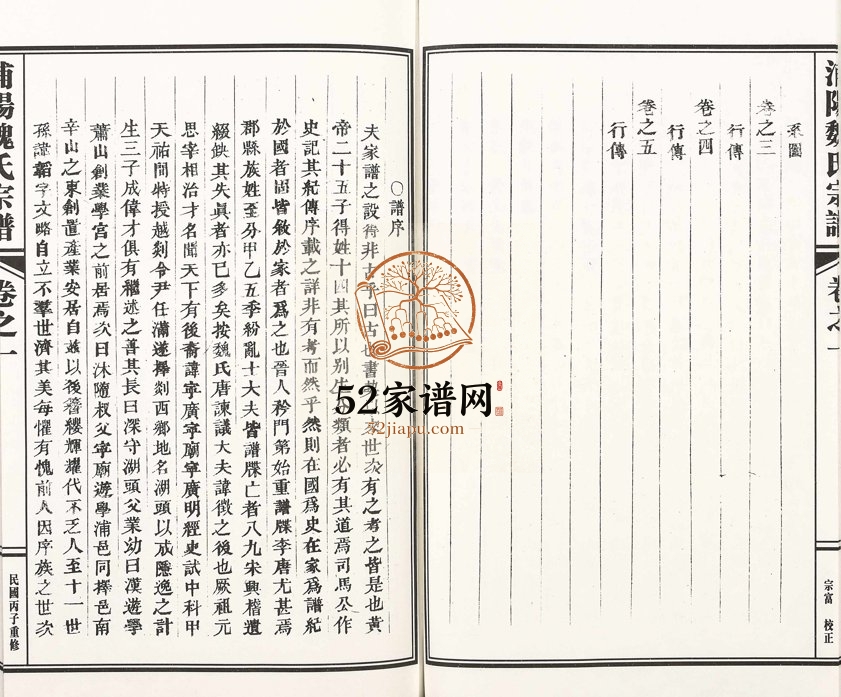 浦陽魏氏宗譜
卷之一
系圖
卷之三
行傳
卷之四
行傳
卷之五
行傳
宗富 校正
〇譜序
夫家譜之設非古乎曰古也書世次有之考之皆是也黃
帝二十五子得姓十四其所以別生分類者必有其道焉司馬公作
史記其紀傳序載之詳非有考而然乎然則在國爲史在家爲譜紀
於國者固皆敘於家者爲之也晉人矜門第始重譜牒李唐尤甚焉
郡縣族姓至分甲乙五季紛亂士大夫皆譜牒亡者八九宋興稽遺
綴缺其失眞者亦已多矣按魏氏唐諫議大夫諱徵之後也厥祖元
思宰相治才名聞天下有後裔諱寧廣寧廟寧廣明經史試中科甲
天祐間特授越剡令尹任滿遂擇剡西鄉地名湖頭以成隱逸之計
生三子成偉才俱有繼述之善其長曰深守湖頭父業幼曰漢遊學
蕭山創業學宮之前居焉次曰沐隨叔父寧廟遊學浦邑同擇邑南
辛山之東創置產業安居自茲以後簪纓輝耀代不乏人至十一世
孫諱韜字文略自立不羣世濟其美每懼有愧前人因序族之世次
浦陽魏氏宗譜
卷之一
民國丙子重修
52家谱网
52jiapu.com